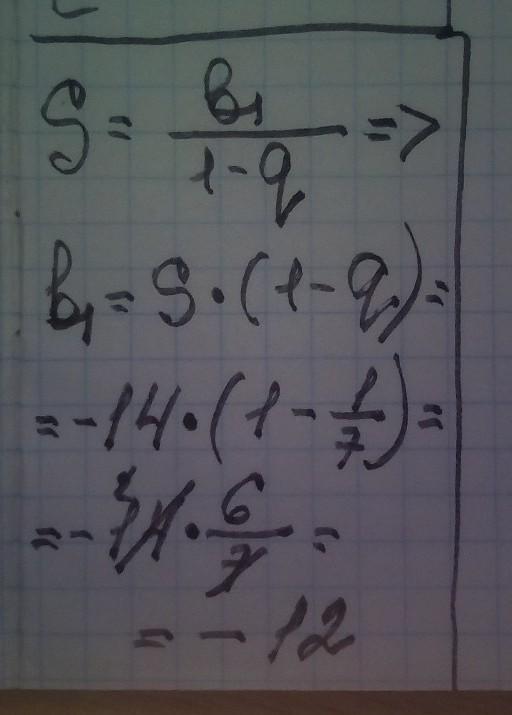 S = b₁/(1-q) =>
b₁ = S·(1-q) =
= -14·(1 - 1/7) =
= -14·6/7 =
= -12